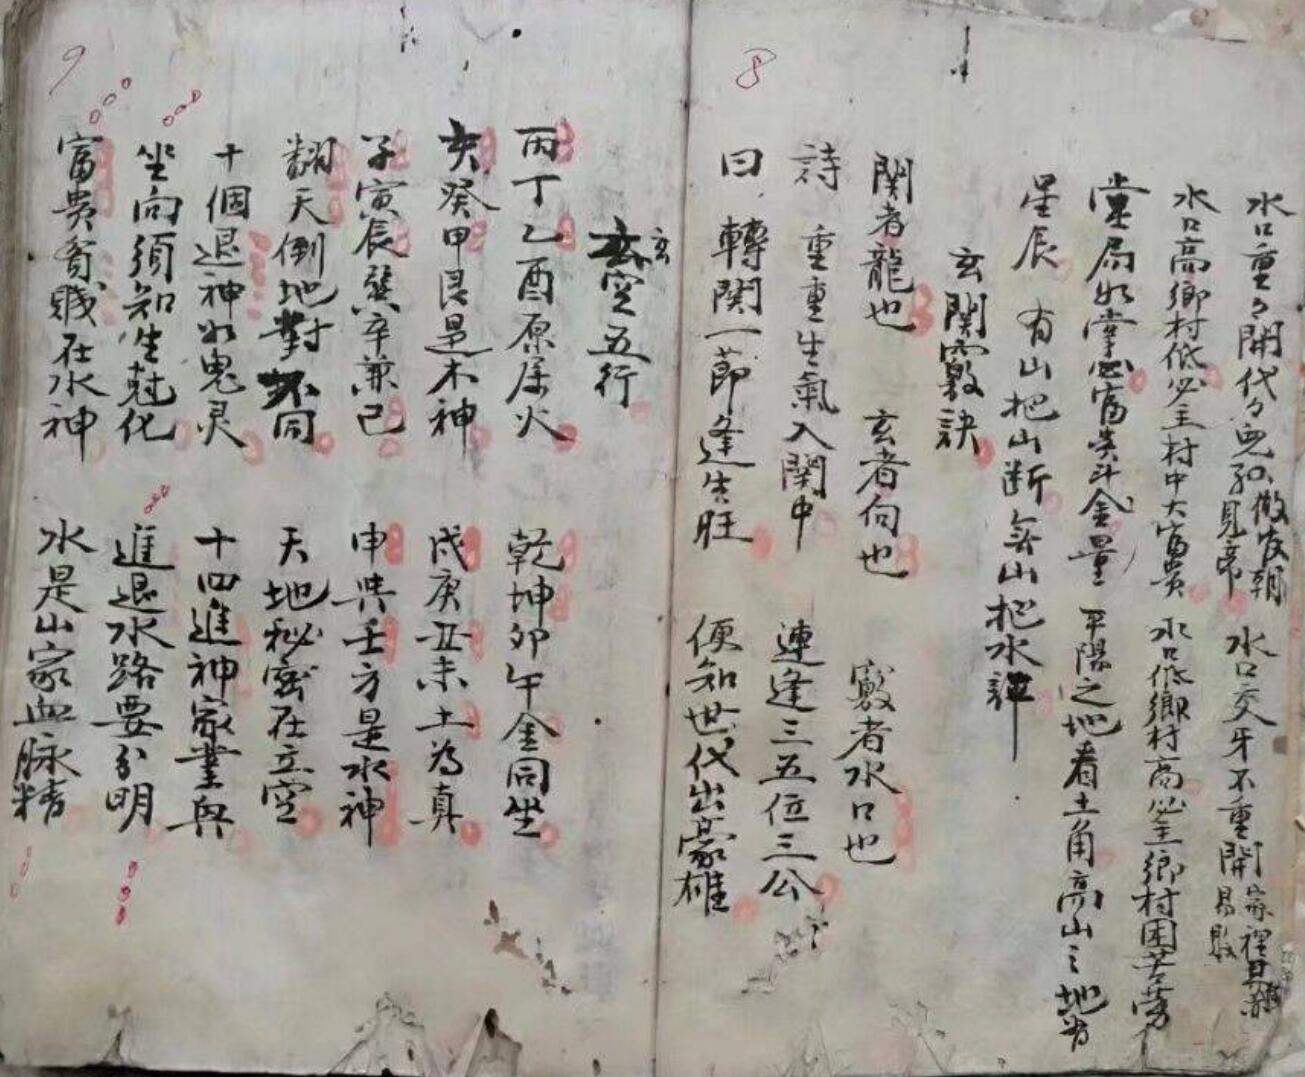 8
水口重々開代々兒孫做官朝見帝 水口交牙不重開家裡易敗
水口高鄉村低必主村中大富貴 水口低鄉村高必主鄉村困苦勞
堂局如掌心富貴斗金量 平陽之地看土角高山之地省
星辰 有山把山斷無山把水
玄關竅訣
關者龍也 玄者向也 竅者水口也
詩 重重生氣入關中 連逢三五位三公
曰 轉關一節逢生旺 便知世代出豪雄
9
玄空五行
玄
丙丁乙酉原屬火 乾坤卯午金同坐
亥癸甲艮是木神 戌庚丑未土為真
子寅辰巽辛兼巳 申與壬方是水神
翻天倒地對不同 天地秘密在立空
十個退神如鬼灵 十四進神家業興
坐向須知生尅化 進退水路要分明
富貴貧賤在水神 水是山家血脉精